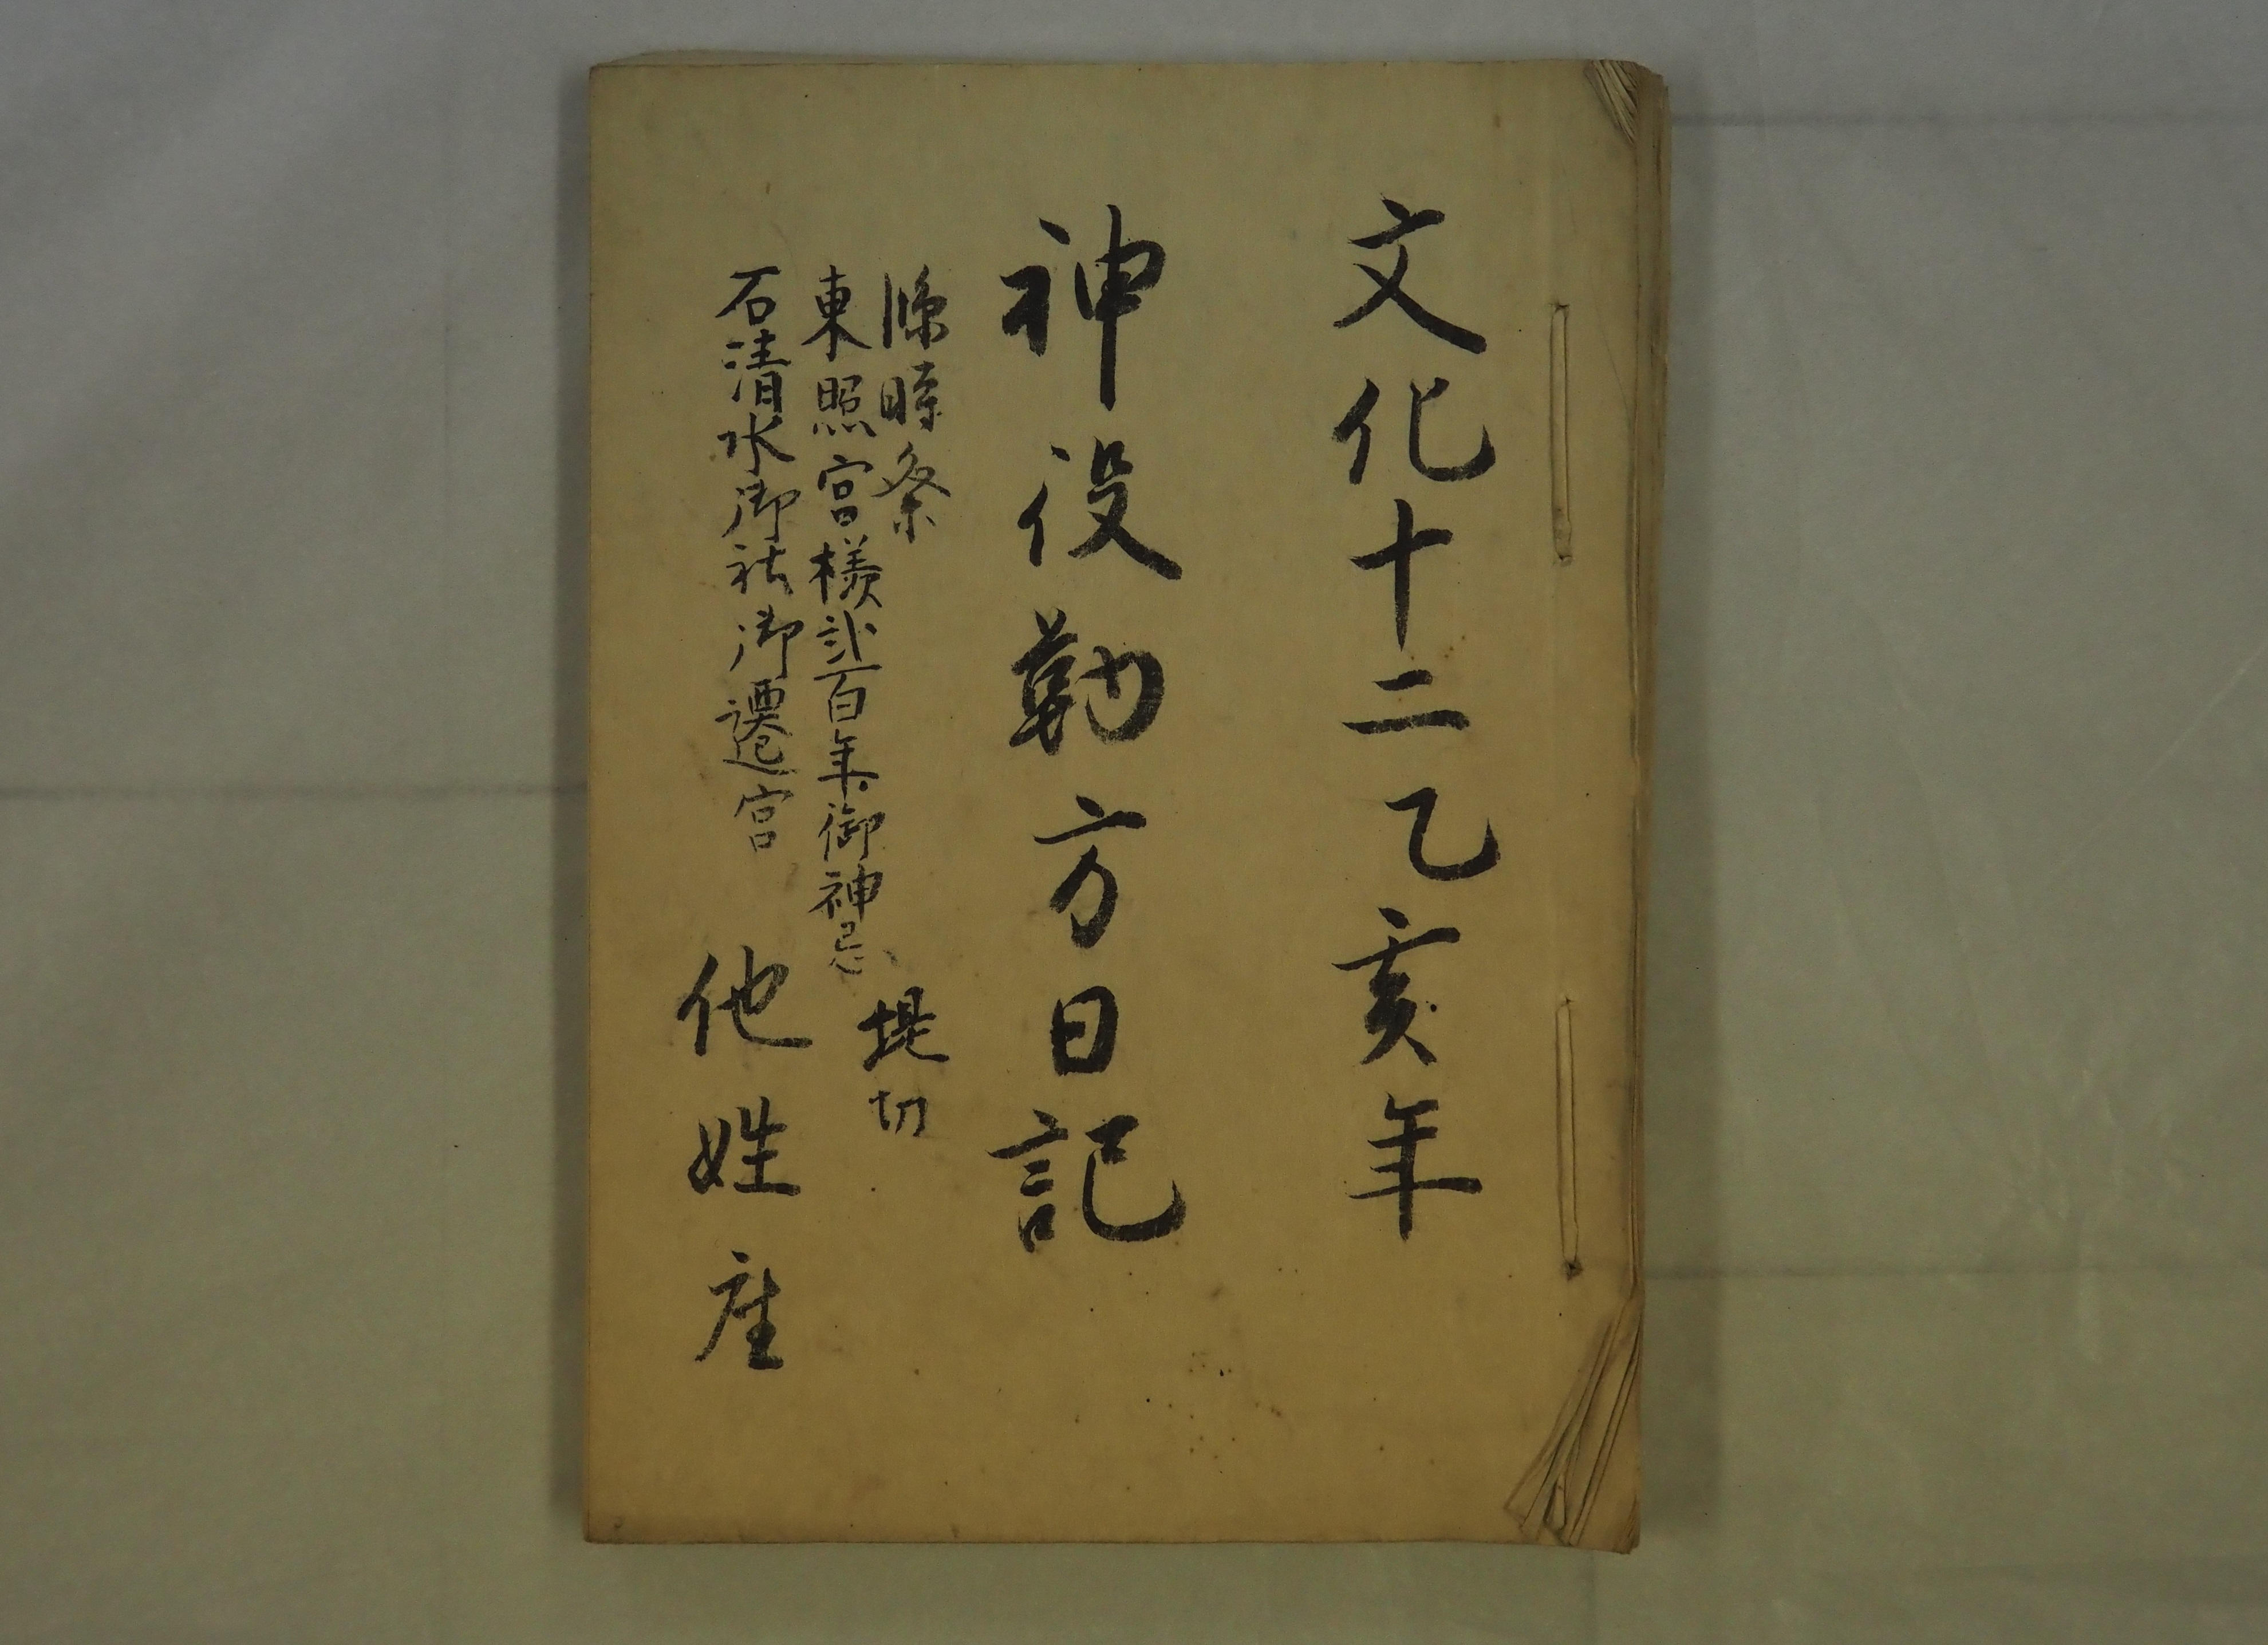 文化十二乙亥年
神役勤方日記
臨時祭
東照宮様弐百年御神忌
堤切
石清水御社御遷宮
他姓座